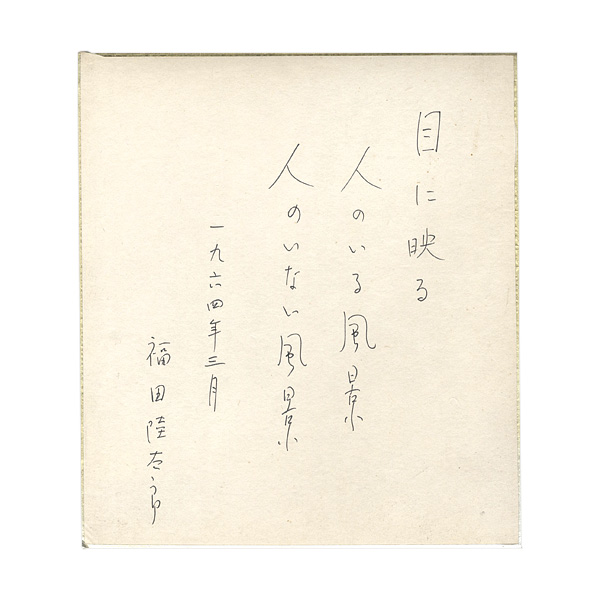 目に映る
人のいる風景
人のいない風景
一九六四年三月
福田陸太郎